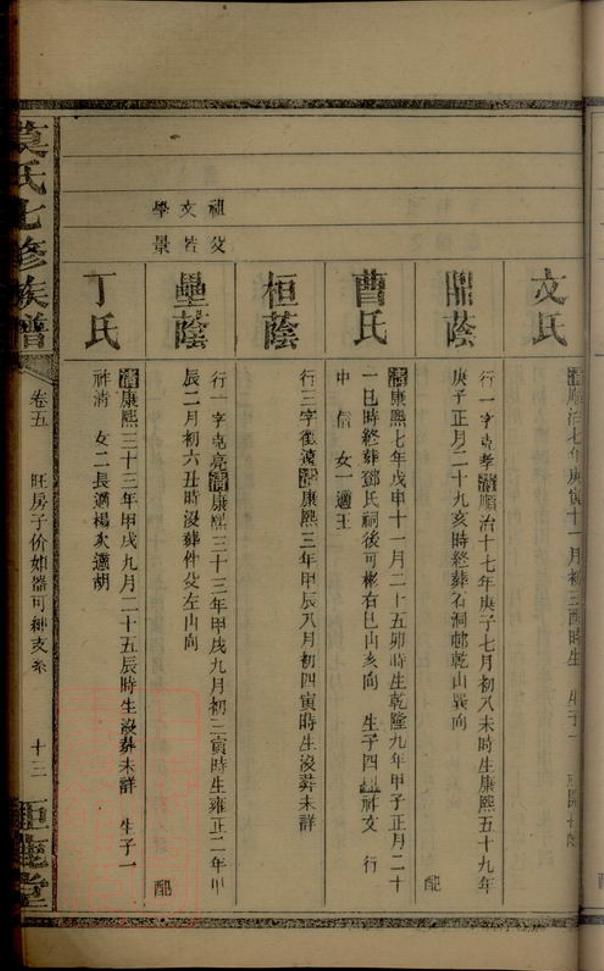 文氏
清順治七年庚寅十一月初三酉時生
鼎蔭
行一字克孝清順治十七年庚子七月初八未時生康熙五十九年
庚子正月二十九亥時終葬石洞邨乾山巽向
配
曹氏
清康熙七年戊申十一月二十五卯時生乾隆九年甲子正月二十
一巳時終葬鄧氏祠後可彬右巳山亥向 生子四 祥文 行
中 信 女一適王
祖父
文
學景
桓蔭
行三字徵遠清康熙三年甲辰八月初四寅時生沒葬未詳
壘蔭
行一字克亮清康熙三十三年甲戌九月初三寅時生雍正二年甲
辰二月初六丑時沒葬件父左山向
配
丁氏
清康熙三十三年甲戌九月二十五辰時生沒葬未詳 生子一
祚清 女二長適楊次適胡
莫氏七修族譜
卷五
旺房子价如器可紳支系
十三
鉅鹿堂